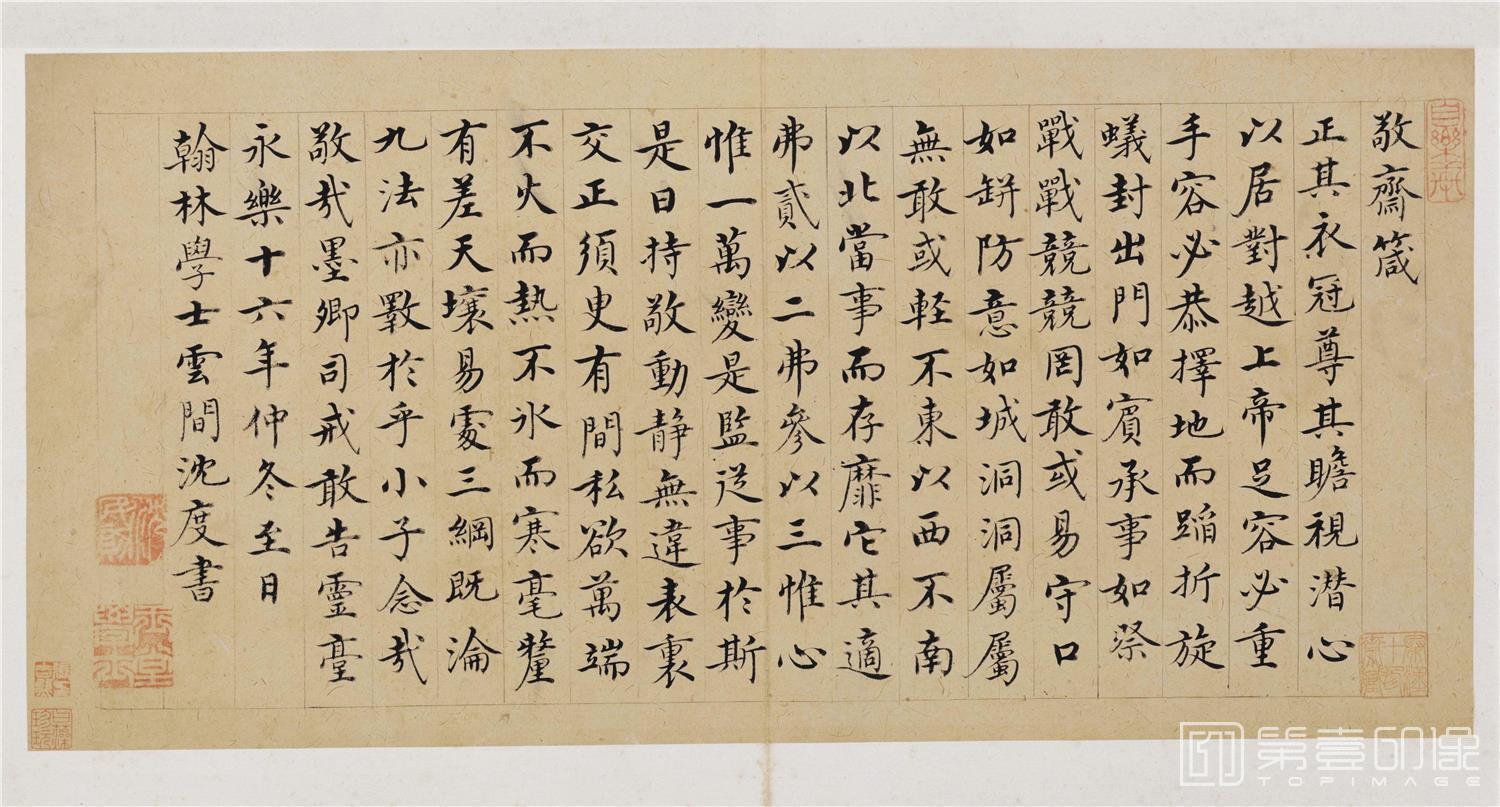 敬齋箴
正其衣冠尊其瞻視潛心
以居對越上帝足容必重
手容必恭擇地而蹈折旋
蟻封出門如賓承事如祭
戰戰競競罔敢或易守口
如缾防意如城洞洞屬屬
無敢或軽不東以西不南
以北當事而存靡它其適
弗貳以二弗參以三惟心
惟一萬變是監從事於斯
是日持敬動静無違表裏
交正須臾有間私欲萬端
不火而熱不氷而寒毫釐
有差天壤易處三綱既淪
九法亦斁於乎小子念哉
敬哉墨卿司戒敢告靈臺
永樂十六年仲冬至日
翰林學士雲間沈度書
第壹印像
TOPIMAGE